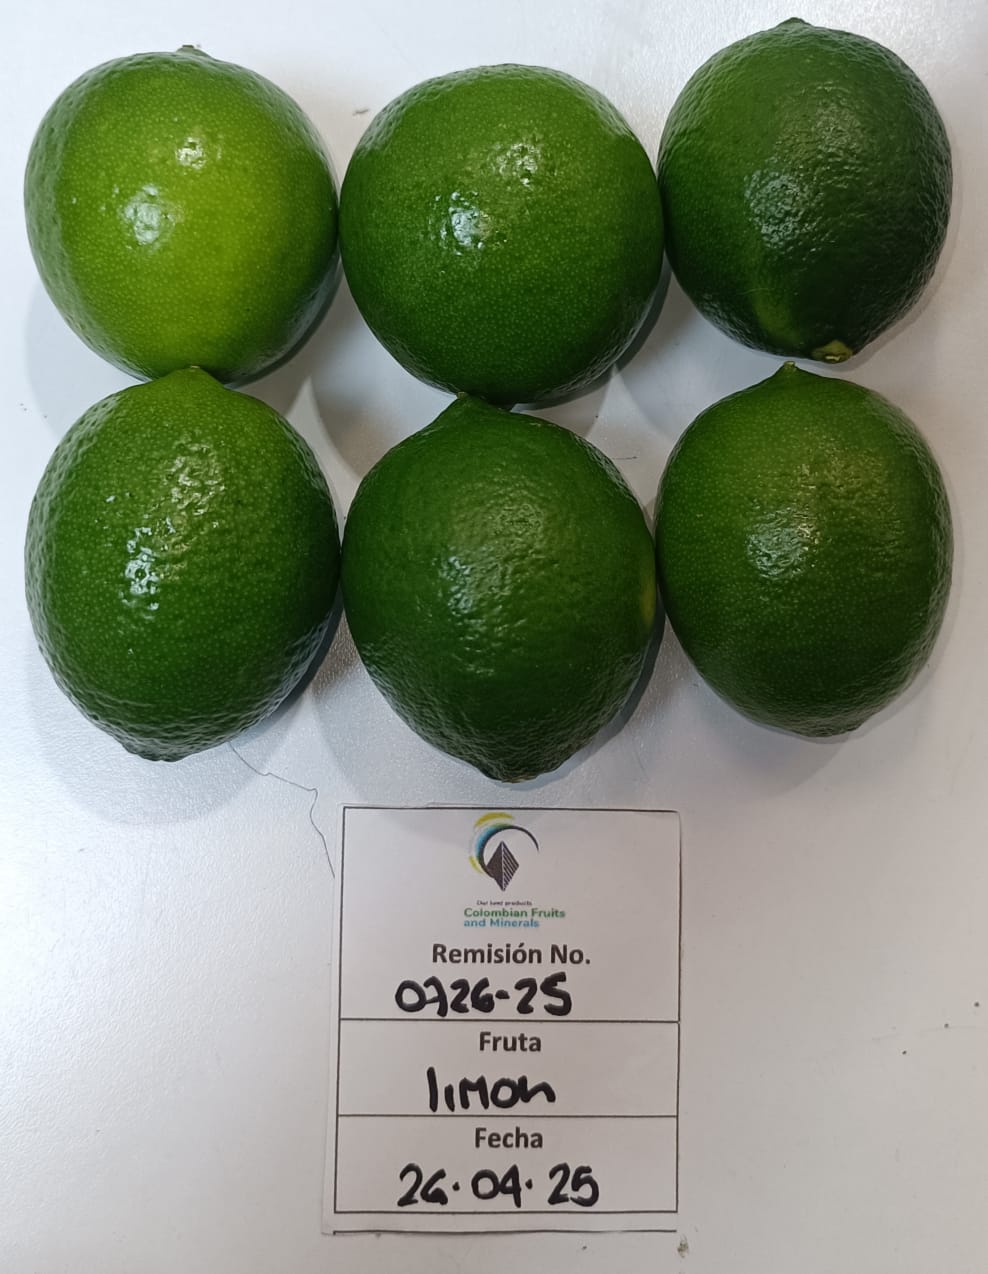 Our best products
Colombian Fruits
and Minerals
Remisión No.
0726-25
Fruta
limon
Fecha
26.04.25